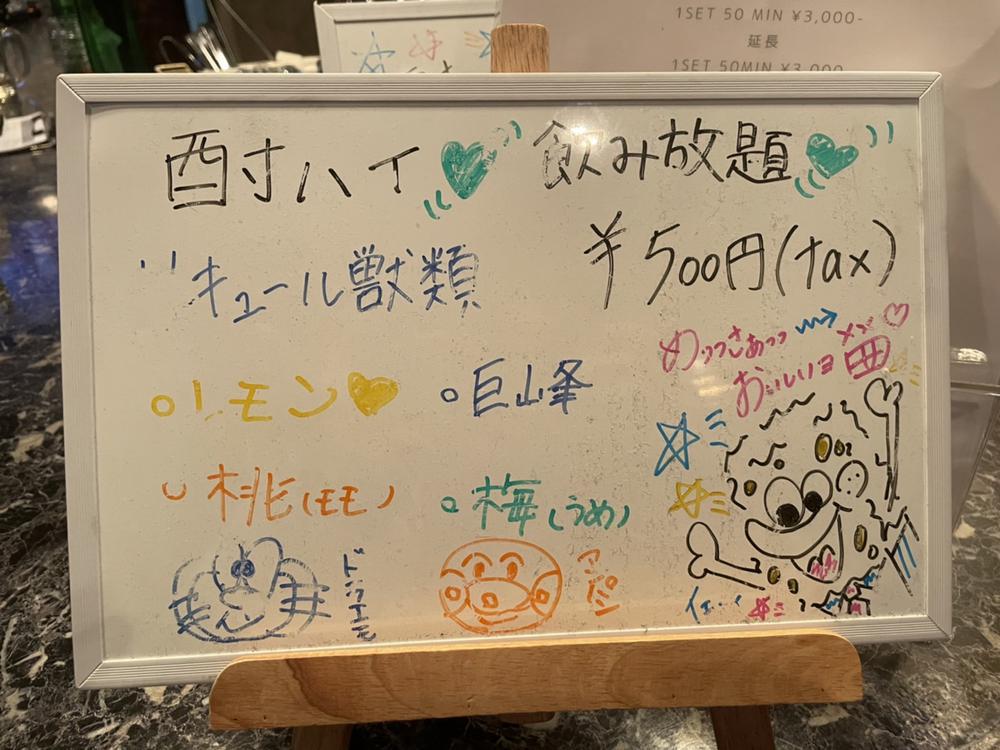 1SET 50 MIN ¥3,000-
延長
1SET 50MIN ¥3,000
酎ハイ 飲み放題
¥500円(tax)
キュール獣類
めっっさあっっ
おいしいヨ
○レモン
○巨峰
○桃(モモ)
○梅(うめ)
ドラエモ
アンパン
イェ…